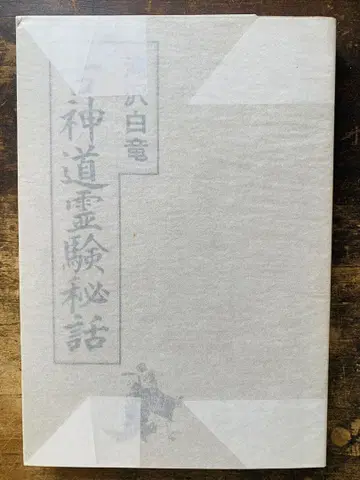 沢白竜
古神道霊験秘話